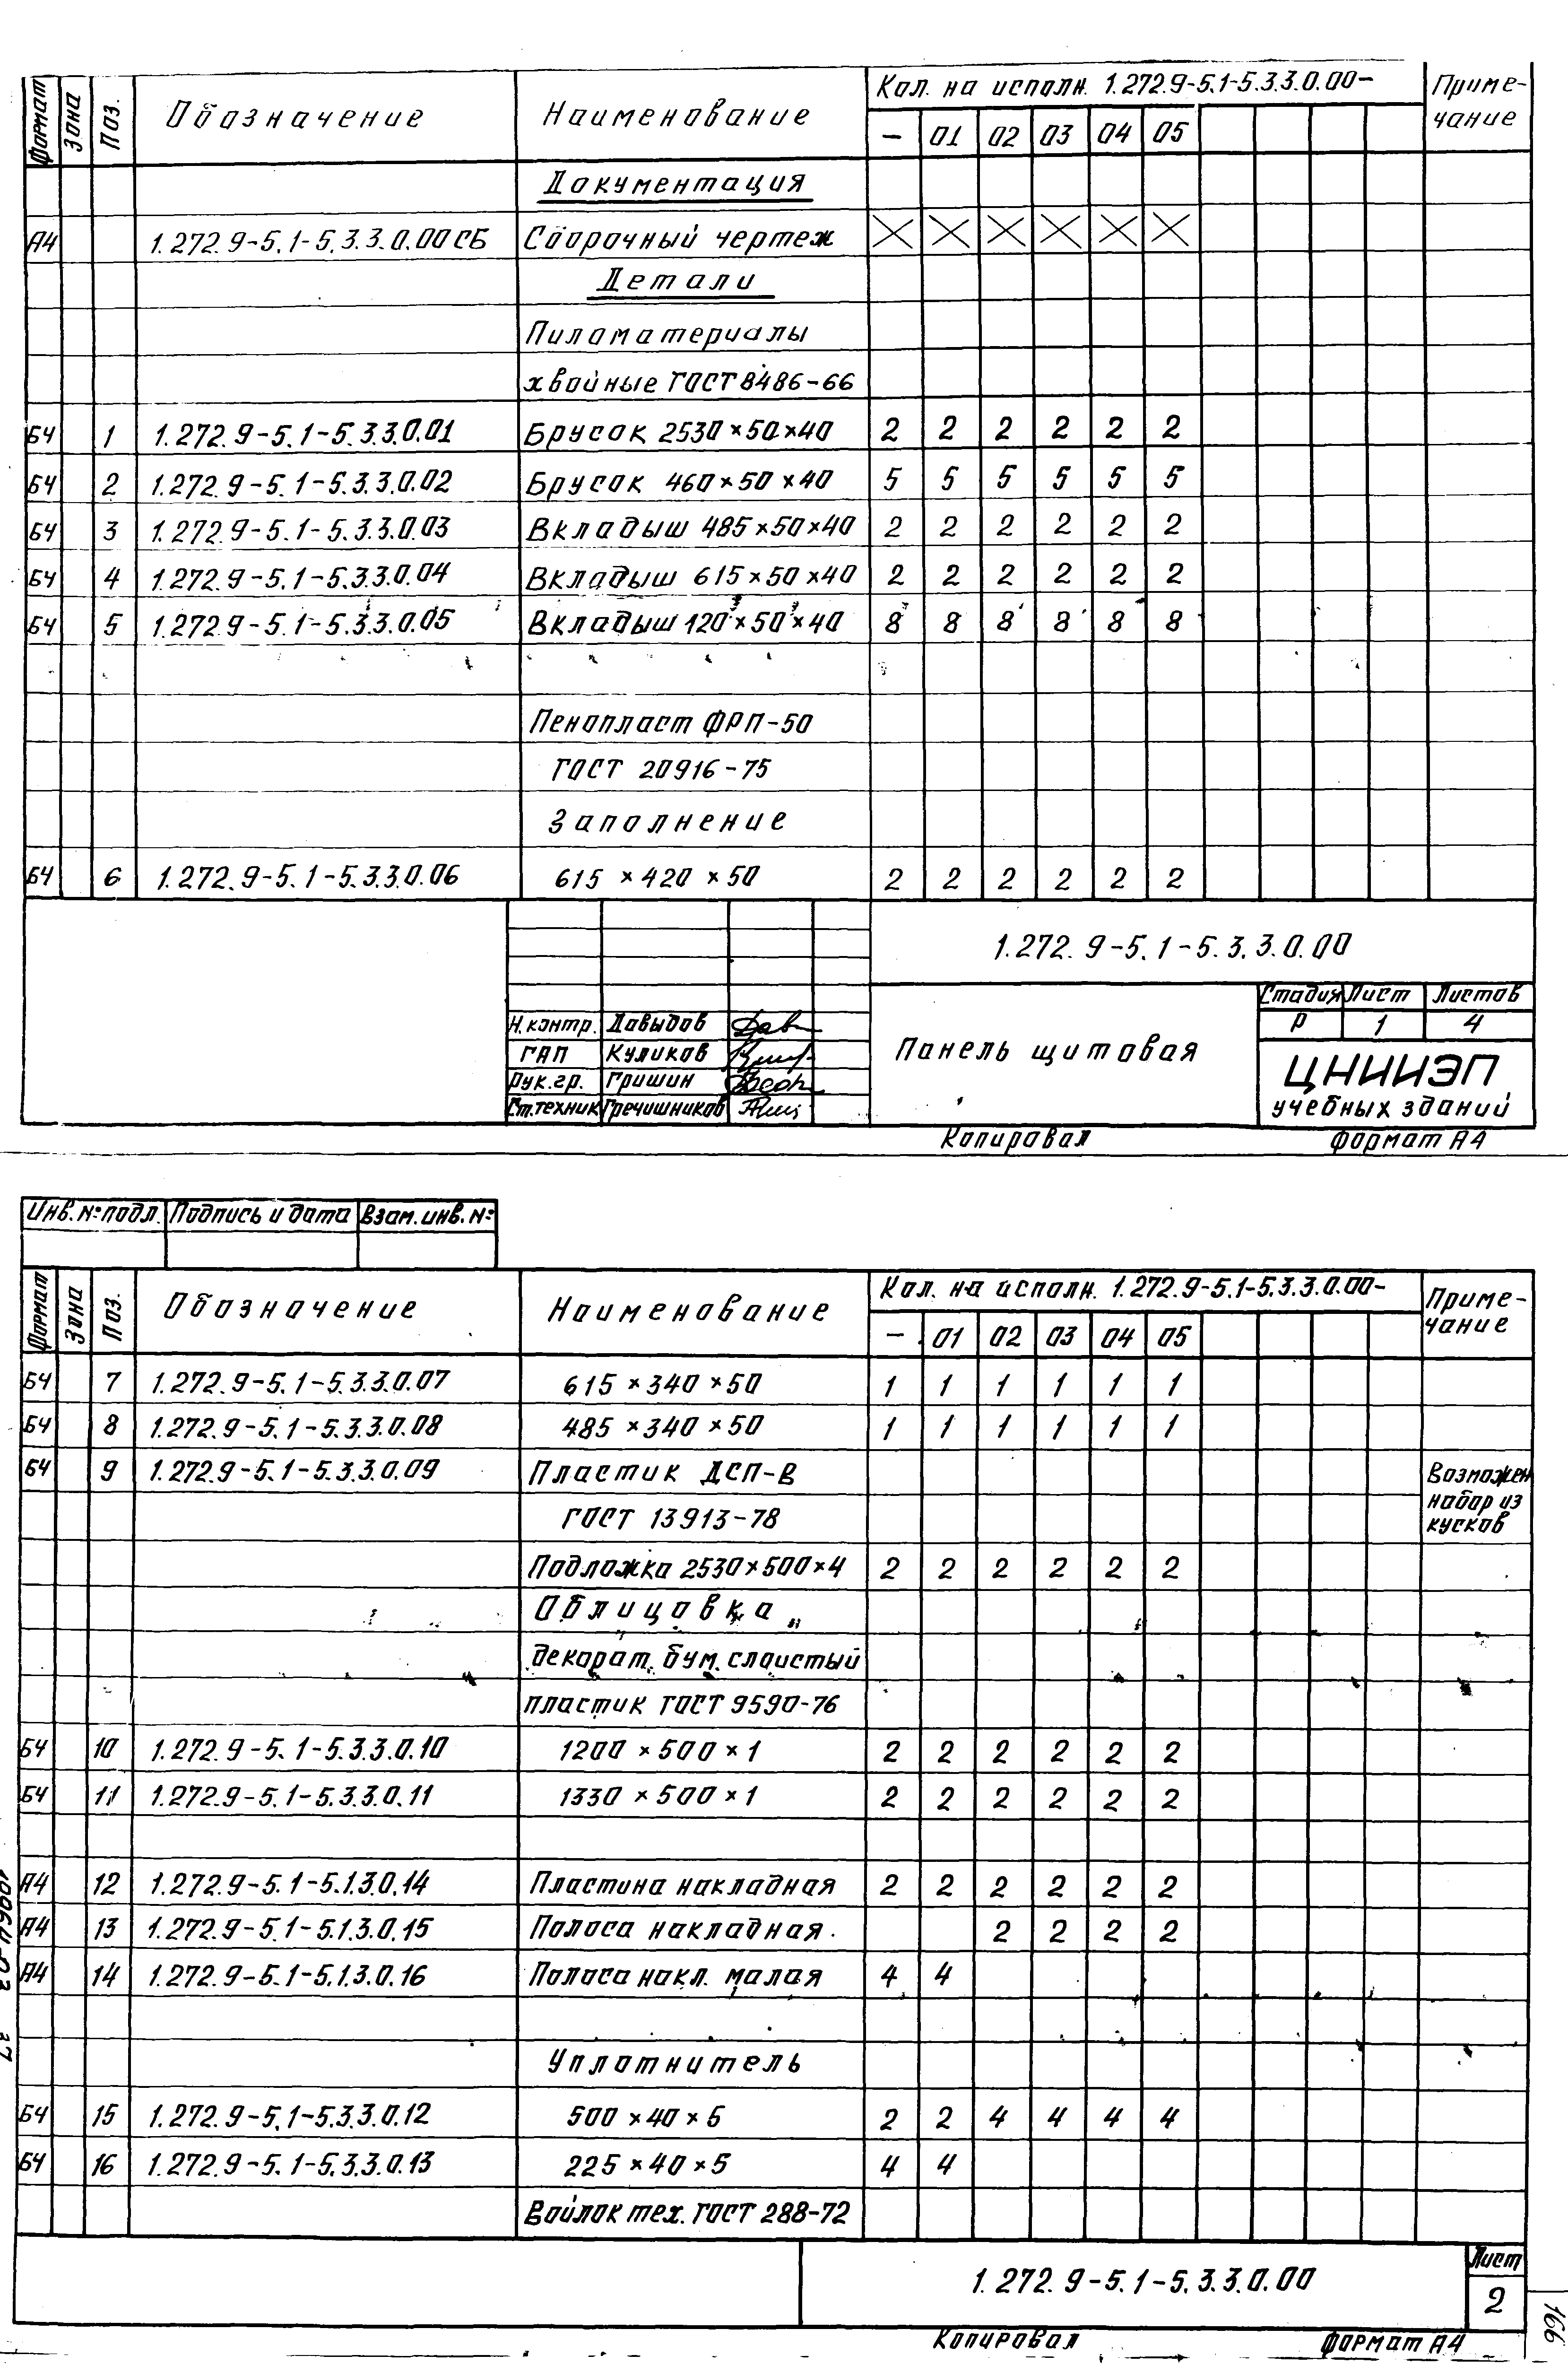 Формат Зона Поз. Обозначение Наименование Кол. на исполн. 1.272.9-5.1-5.3.3.0.00- Приме-
чание
— 01 02 03 04 05
Документация
А4 1.272.9-5.1-5.3.3.0.00 СБ Сборочный чертеж
Детали
Пиломатериалы
хвойные ГОСТ 8486-66
БЧ 1 1.272.9-5.1-5.3.3.0.01 Брусок 2530×50×40 2 2 2 2 2 2
БЧ 2 1.272.9-5.1-5.3.3.0.02 Брусок 460×50×40 5 5 5 5 5 5
БЧ 3 1.272.9-5.1-5.3.3.0.03 Вкладыш 485×50×40 2 2 2 2 2 2
БЧ 4 1.272.9-5.1-5.3.3.0.04 Вкладыш 615×50×40 2 2 2 2 2 2
БЧ 5 1.272.9-5.1-5.3.3.0.05 Вкладыш 120×50×40 8 8 8 8 8 8
Пенопласт ФРП-50
ГОСТ 20916-75
Заполнение
БЧ 6 1.272.9-5.1-5.3.3.0.06 615×420×50 2 2 2 2 2 2
1.272.9-5.1-5.3.3.0.00
Н.контр. Давыдов
ГАП Куликов
Рук.гр. Гришин
Ст.техник Гречишников
Панель щитовая
Стадия Лист Листов
Р 1 4
ЦНИИЭП
учебных зданий
Копировал Формат А4
Инв. № подл. Подпись и дата Взам. инв. №
Формат Зона Поз. Обозначение Наименование Кол. на исполн. 1.272.9-5.1-5.3.3.0.00- Приме-
чание
— 01 02 03 04 05
БЧ 7 1.272.9-5.1-5.3.3.0.07 615×340×50 1 1 1 1 1 1
БЧ 8 1.272.9-5.1-5.3.3.0.08 485×340×50 1 1 1 1 1 1
БЧ 9 1.272.9-5.1-5.3.3.0.09 Пластик ДСП-В Возможен
ГОСТ 13913-78 набор из
кусков
Подложка 2530×500×4 2 2 2 2 2 2
Облицовка
декорат. бум. слоистый
пластик ГОСТ 9590-76
БЧ 10 1.272.9-5.1-5.3.3.0.10 1200×500×1 2 2 2 2 2 2
БЧ 11 1.272.9-5.1-5.3.3.0.11 1330×500×1 2 2 2 2 2 2
А4 12 1.272.9-5.1-5.1.3.0.14 Пластина накладная 2 2 2 2 2 2
А4 13 1.272.9-5.1-5.1.3.0.15 Полоса накладная. 2 2 2 2
А4 14 1.272.9-5.1-5.1.3.0.16 Полоса накл. малая 4 4
Уплотнитель
БЧ 15 1.272.9-5.1-5.3.3.0.12 500×40×5 2 2 4 4 4 4
БЧ 16 1.272.9-5.1-5.3.3.0.13 225×40×5 4 4
Войлок тех. ГОСТ 288-72
1.272.9-5.1-5.3.3.0.00
Лист
2
Копировал Формат А4
166